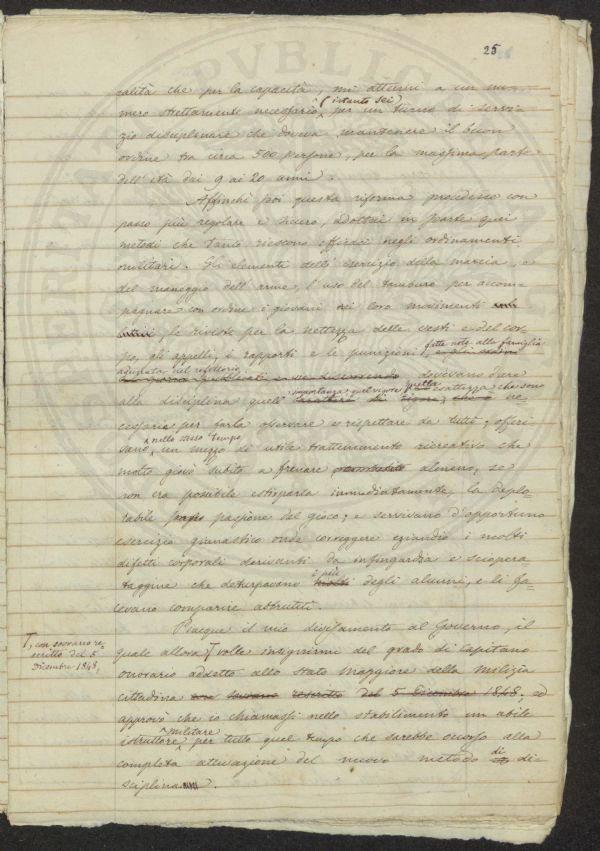 25
ralità che per la capacità, mi attenni a un nu-
mero strettamente necessario (istanto sei) per un turno di servi-
zio disciplinare che doveva mantenere il buon
ordine tra circa 500 persone, per la massima parte
dell'età dai 9 ai 20 anni.
Affinchè poi questa riforma procedesse con
passo più regolare e sicuro, adottai in parte quei
metodi che tanto riescono efficaci negli ordinamenti
militari. Gli elementi dell'esercizio della marcia, e
del maneggio dell'arme, l'uso del tamburo per accom-
pagnare con ordine i giovani nei loro movimenti
le riviste per la nettezza delle vesti e del cor-
po, gli appelli, i rapporti e le punizioni, fatte note alla famiglia
adunata nel refettorio dovevano dare
alla disciplina quell' importanza, quel vigore, quella esattezza che sono ne-
cessarie per farla osservare e rispettare da tutti; offeri-
vano, nello stesso tempo un mezzo di utile trattenimento ricreativo che
molto giovò subito a frenare almeno, se
non era possibile estirparla immediatamente, la deplo-
rabile passione del gioco; e servivano d'opportuno
esercizio ginnastico onde correggere eziandio i molti
difetti corporali derivanti da infingardia e sciopera-
taggine che deturpavano i più degli alunni, e li fa-
cevano comparire abbrutiti.
Piacque il mio divisamento al Governo, il
quale allora volle insignirmi del grado di Capitano
T, con sovrano re-
scritto del 5
Dicembre 1848,
onorario addetto allo Stato Maggiore della Milizia
cittadina rescritto del 5 Dicembre 1848; ed
approvò che io chiamassi nello stabilimento un abile
istruttore militare per tutto quel tempo che sarebbe occorso alla
completa attuazione del nuovo metodo di di-
sciplina.